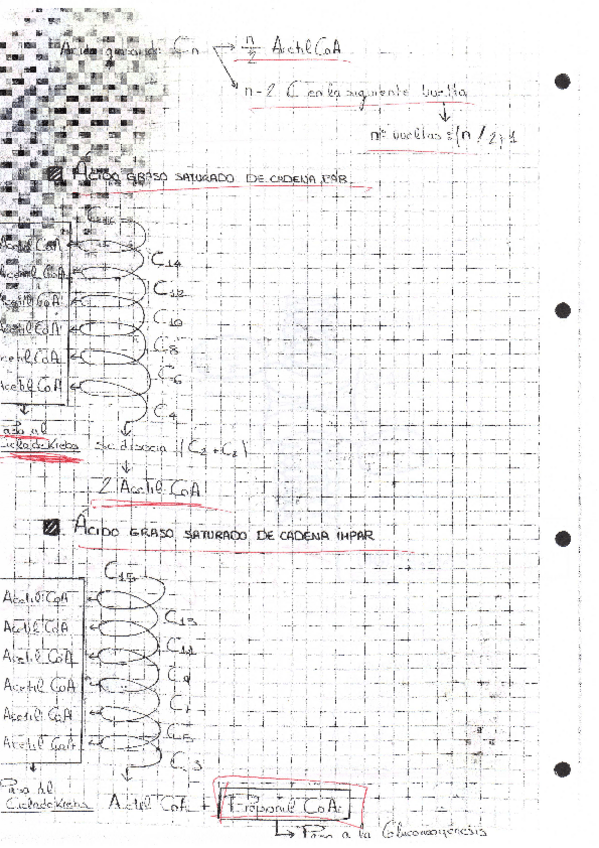 n/2 Acetil CoA
n-2 C en la siguiente vuelta
nº vueltas = (n/2)-1
ÁCIDO GRASO SATURADO DE CADENA PAR.
Acetil CoA
C14
Acetil CoA
C12
Acetil CoA
C10
Acetil CoA
C8
Acetil CoA
C6
Acetil CoA
C4
Paso al
Ciclo de Krebs
Se disocia (C2 + C2)
2 Acetil CoA
ÁCIDO GRASO SATURADO DE CADENA IMPAR
C15
Acetil CoA
C13
Acetil CoA
C11
Acetil CoA
C9
Acetil CoA
C7
Acetil CoA
C5
Acetil CoA
C3
Paso al
Ciclo de Krebs
Acetil CoA + Propionil CoA
Paso a la Gluconeogénesis